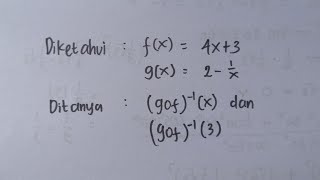 Diketahui : f(x) = 4x+3
g(x) = 2 - 1/x
Ditanya : (gof)⁻¹(x) dan
(gof)⁻¹(3)